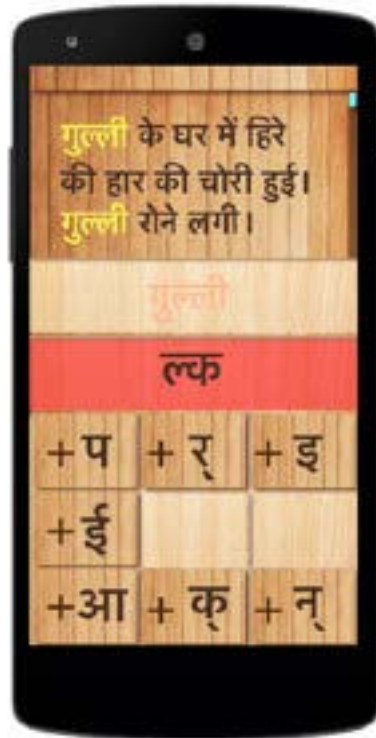 गुल्ली के घर में हिरे
की हार की चोरी हुई।
गुल्ली रोने लगी।
गुल्ली
ल्क
+ प + र् + इ
+ ई
+आ + क् + न्